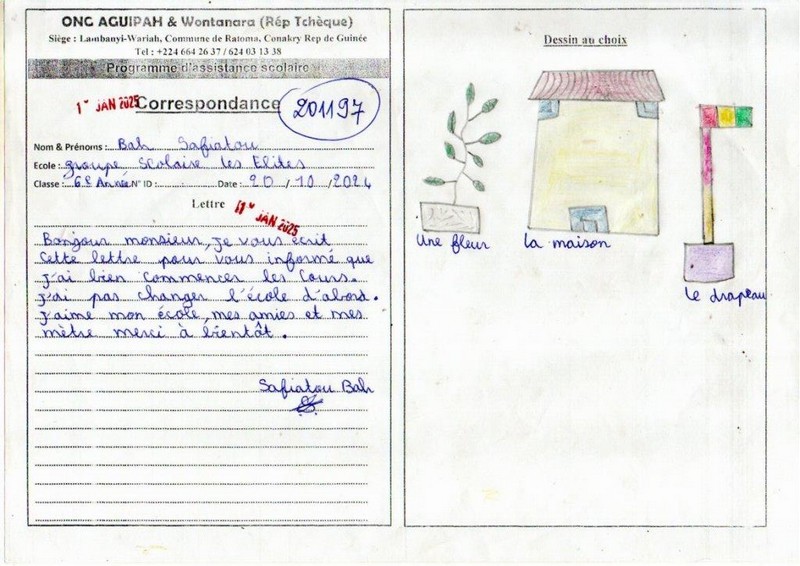 ONG AGUIPAH & Wontanara (Rép Tchèque)
Siège : Lambanyi-Wariah, Commune de Ratoma, Conakry Rep de Guinée
Tel : +224 664 26 37 / 624 03 13 38
Programme d'assistance scolaire
JAN 2025
Correspondance
201197
Nom & Prénoms : Bah Safiatou
Ecole : groupe Scolaise les Elites
Classe : 6e Année N° ID : Date : 20 / 10 / 2024
Lettre
JAN 2025
Bonjour monsieur, je vous écrit
Cette lettre pour vous informé que
j'ai bien commencer les Cours.
j'ai pas changer l'école d'abord.
j'aime mon école, mes amies et mes
mètre merci à bientât.
Safiatou Bah
Dessin au choix
Une fleur
la maison
le drapeau